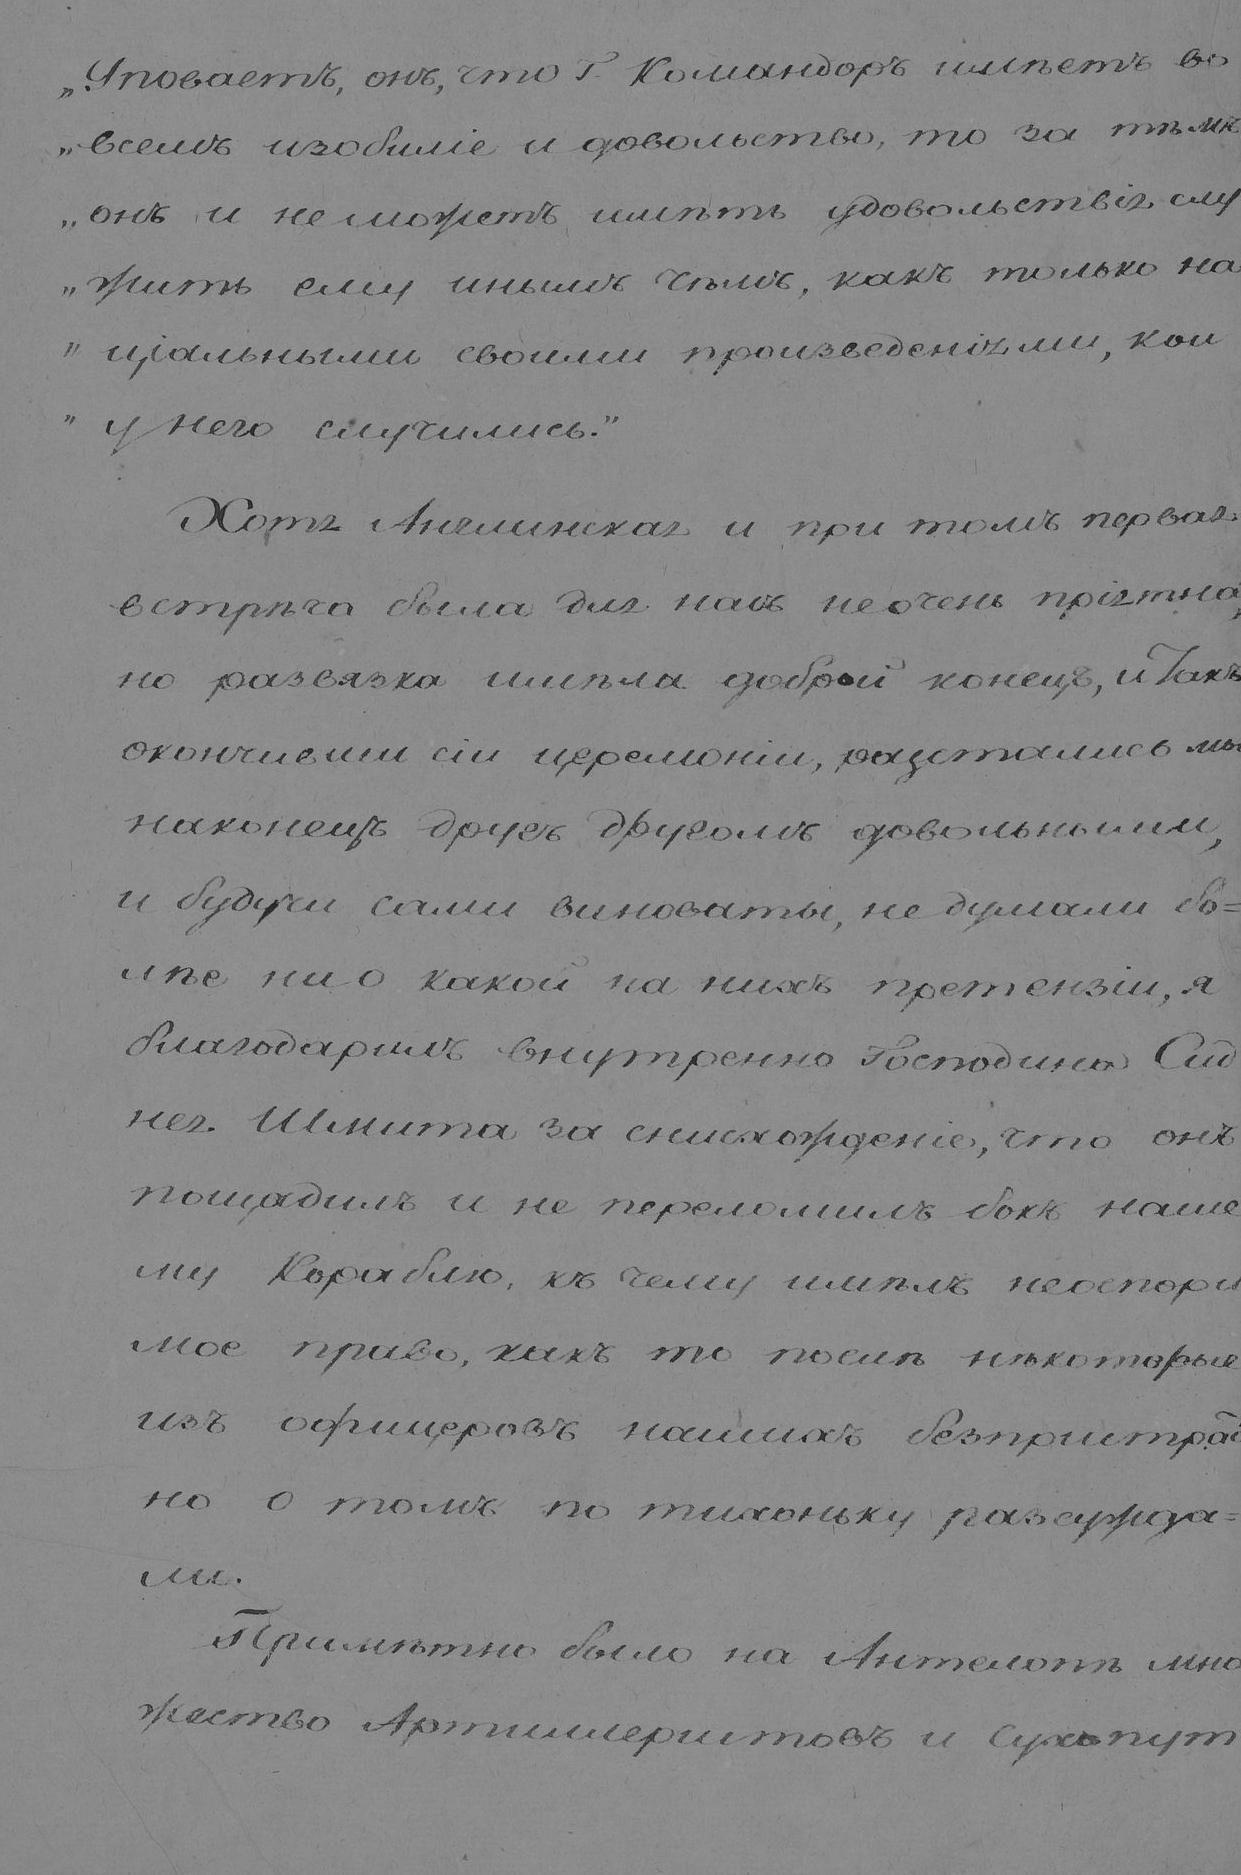 „Уповаетъ, онъ, что Г. Командоръ имѣетъ во
„всемъ изобиліе и довольство, то за тѣмъ
„онъ и не можетъ имѣть удовольствія слу
„жить ему инымъ чѣмъ, какъ только на
„ціальными своими произведеніями, кои
„у него случились."
Хотя Англинская и при томъ первая
встрѣча была для насъ не очень пріятна,
но развязка имѣла доброй конецъ, и такъ
окончивши сіи церемоніи, разстались мы
наконецъ другъ другомъ довольными,
и будучи сами виноваты, не думали бо=
лѣе ни о какой на нихъ претензіи, я
благодарилъ внутренно Господина Сид
нея Шмита за снисхожденіе, что онъ
пощадилъ и не переломилъ бокъ наше
му Кораблю, къ чему имѣлъ неоспори
мое право, какъ то послѣ нѣкоторые
изъ офицеровъ нашихъ безпристраст
но о томъ по тихоньку разсужда=
ли.
Примѣтно было на Антелопѣ мно
жество Артиллеристовъ и сухопут